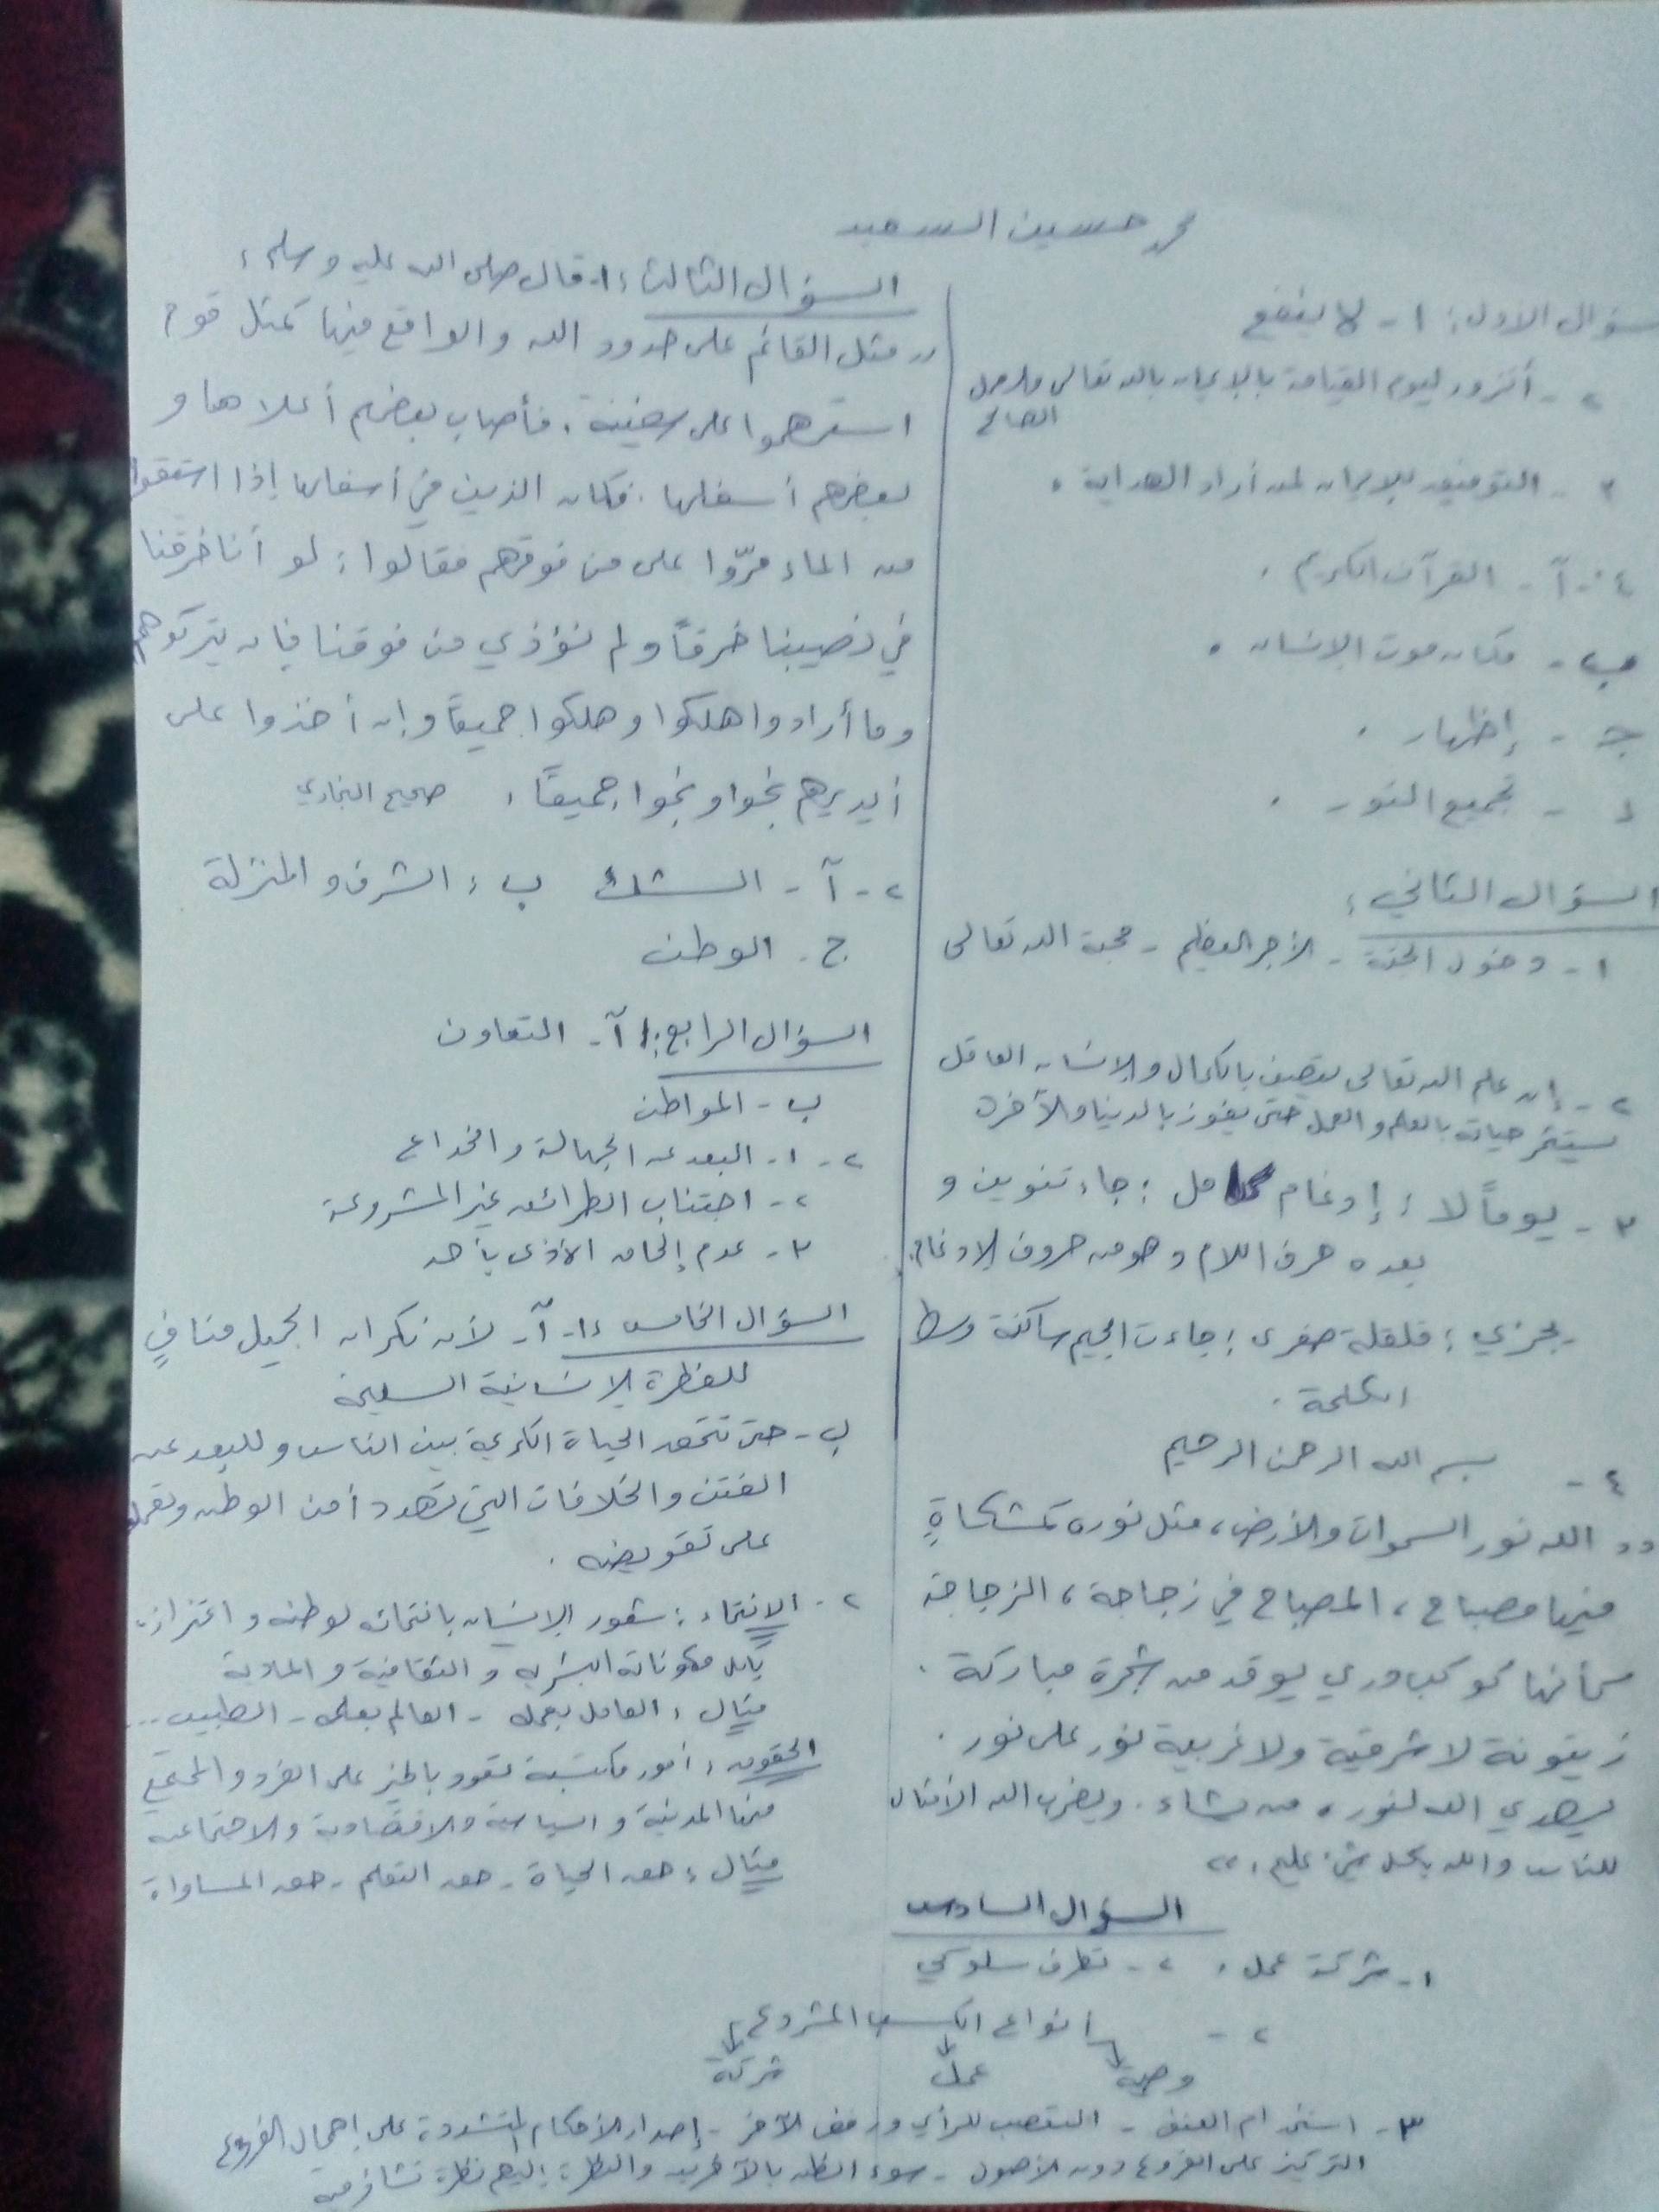 محمد حسين السعيد
سؤال الاول: ١- لا ينفع
٢- أتزود ليوم القيامة بالإيمان بالله تعالى والعمل
الصالح
٣- التوفيق للإيمان لمن أراد الهداية .
٤- آ- القرآن الكريم .
ب- مكان موت الإنسان .
ج- إظهار .
د- تجميع النور .
السؤال الثاني :
١- دخول الجنة - الأجر العظيم - محبة الله تعالى
٢- إن علم الله تعالى يتصف بالكمال والإنسان العاقل
يستثمر حياته بالعلم والعمل حتى يفوز بالدنيا والآخرة
٣- يوماً لا : إدغام كامل : جاء تنوين و
بعده حرف اللام وهو من حروف الإدغام.
يجزي : قلقلة صغرى : جاءت الجيم ساكنة وسط
الكلمة .
٤- بسم الله الرحمن الرحيم
"الله نور السموات والأرض، مثل نوره كمشكاةٍ
فيها مصباح ، المصباح في زجاجة ، الزجاجة
كأنها كوكب دري يوقد من شجرة مباركة .
زيتونة لا شرقية ولا غربية نور على نور .
يهدي الله لنوره من يشاء . ويضرب الله الأمثال
للناس والله بكل شيء عليم ."
السؤال الثالث : ١- قال صلى الله عليه وسلم :
"مثل القائم على حدود الله والواقع فيها كمثل قوم
استهموا على سفينة . فأصاب بعضهم أعلاها و
بعضهم أسفلها . فكان الذين في أسفلها إذا استقوا
من الماء مرّوا على من فوقهم فقالوا : لو أنا خرقنا
في نصيبنا خرقاً ولم نؤذي من فوقنا فإن يتركوهم
وما أرادوا هلكوا وهلكوا جميعاً وإن أخذوا على
أيديهم نجوا ونجوا جميعاً . صحيح البخاري
٢- آ- الشك ب : الشرف والمنزلة
ج- الوطن
السؤال الرابع : ١ آ- التعاون
ب- المواطن
٢- ١- البعد عن الجهالة والخداع
٢- اجتناب الطرائق غير المشروعة
٣- عدم إلحاق الأذى بأحد
السؤال الخامس : ١- آ- لأن نكران الجميل منافٍ
للفطرة الإنسانية السليمة
ب- حتى تتحقق الحياة الكريمة بين الناس وللبعد عن
الفتن والخلافات التي تهدد أمن الوطن وتعمل
على تقويضه .
٢- الانتماء : شعور الإنسان بانتمائه لوطنه واعتزازه
بكل مكوناته البشرية والثقافية والمادية
مثال : العامل بعمله - العالم بعلمه - الطبيب ...
الحقوق : أمور مكتسبة تعود بالخير على الفرد والمجتمع
منها المدنية والسياسية والاقتصادية والاجتماعية
مثال : حق الحياة - حق التعلم - حق المساواة
السؤال السادس
١- شركة عمل . ٢- تطرف سلوكي
٢- أنواع الكسب المشروع
وصية عمل شركة
٣- استخدام العنف - التعصب للرأي ورفض الآخر - إصدار الأحكام المتشددة على إهمال الفروع
التركيز على الفروع دون الأصول - سوء الظن بالآخرين والنظرة إليهم نظرة تشاؤمية